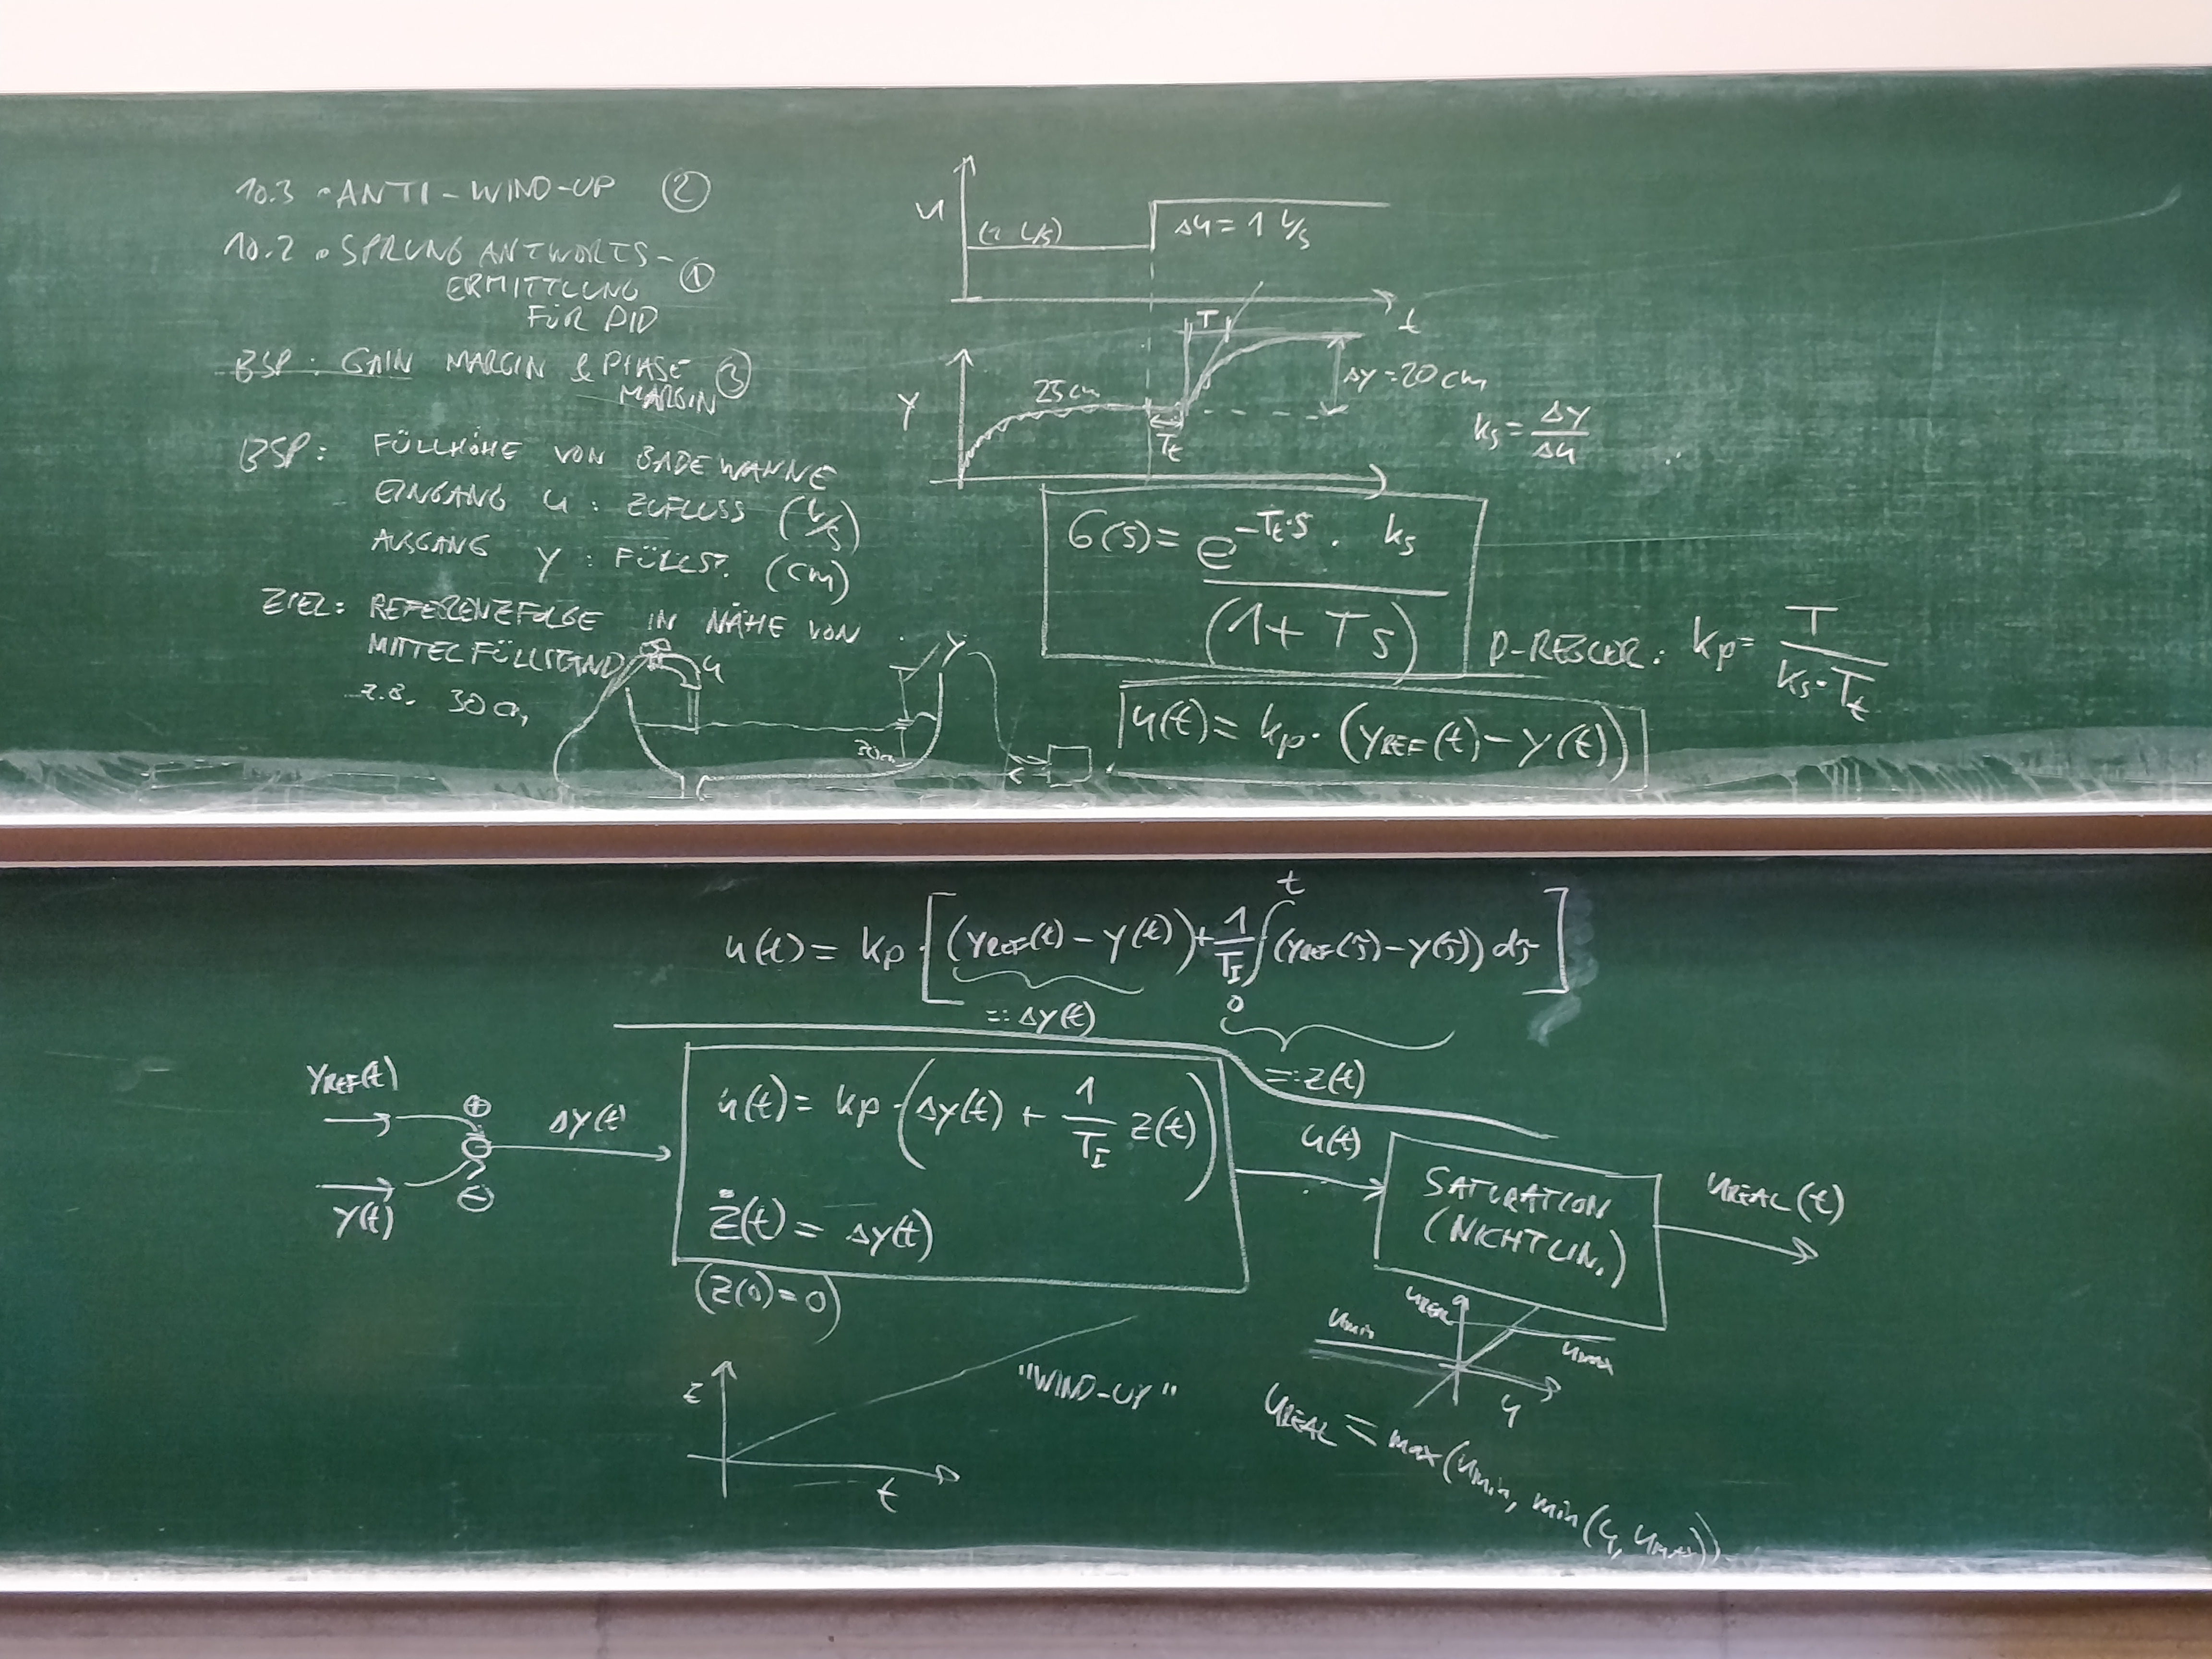 10.3 • ANTI-WIND-UP ②
10.2 • SPRUNGANTWORTS-
ERMITTLUNG ①
FÜR PID
BSP: GAIN MARGIN & PHASE
MARGIN ③
BSP: FÜLLHÖHE VON BADEWANNE
EINGANG u: ZUFLUSS (L/s)
AUSGANG y: FÜLLST. (cm)
ZIEL: REFERENZFOLGE IN NÄHE VON
MITTELFÜLLSTAND
z.B. 30 cm
u
y
30cm
u
(2 L/s)
Δu = 1 L/s
t
T
y
25cm
Δy = 20 cm
T_t
k_s = Δy/Δu
G(s) = e^(-T_t·s) · k_s / (1+Ts)
P-REGLER: k_p = T / (k_s·T_t)
u(t) = k_p · (y_REF(t) - y(t))
u(t) = k_p · [(y_REF(t) - y(t)) + 1/T_I ∫_0^t (y_REF(τ) - y(τ)) dτ]
=: Δy(t)
=: z(t)
y_REF(t)
⊕
Δy(t)
⊖
y(t)
u(t) = k_p · (Δy(t) + 1/T_I z(t))
ż(t) = Δy(t)
(z(0)=0)
u(t)
SATURATION
(NICHTLIN.)
u_REAL(t)
u_REAL
u_min
u_max
u
z
t
"WIND-UP"
u_REAL = max(u_min, min(u, u_max))